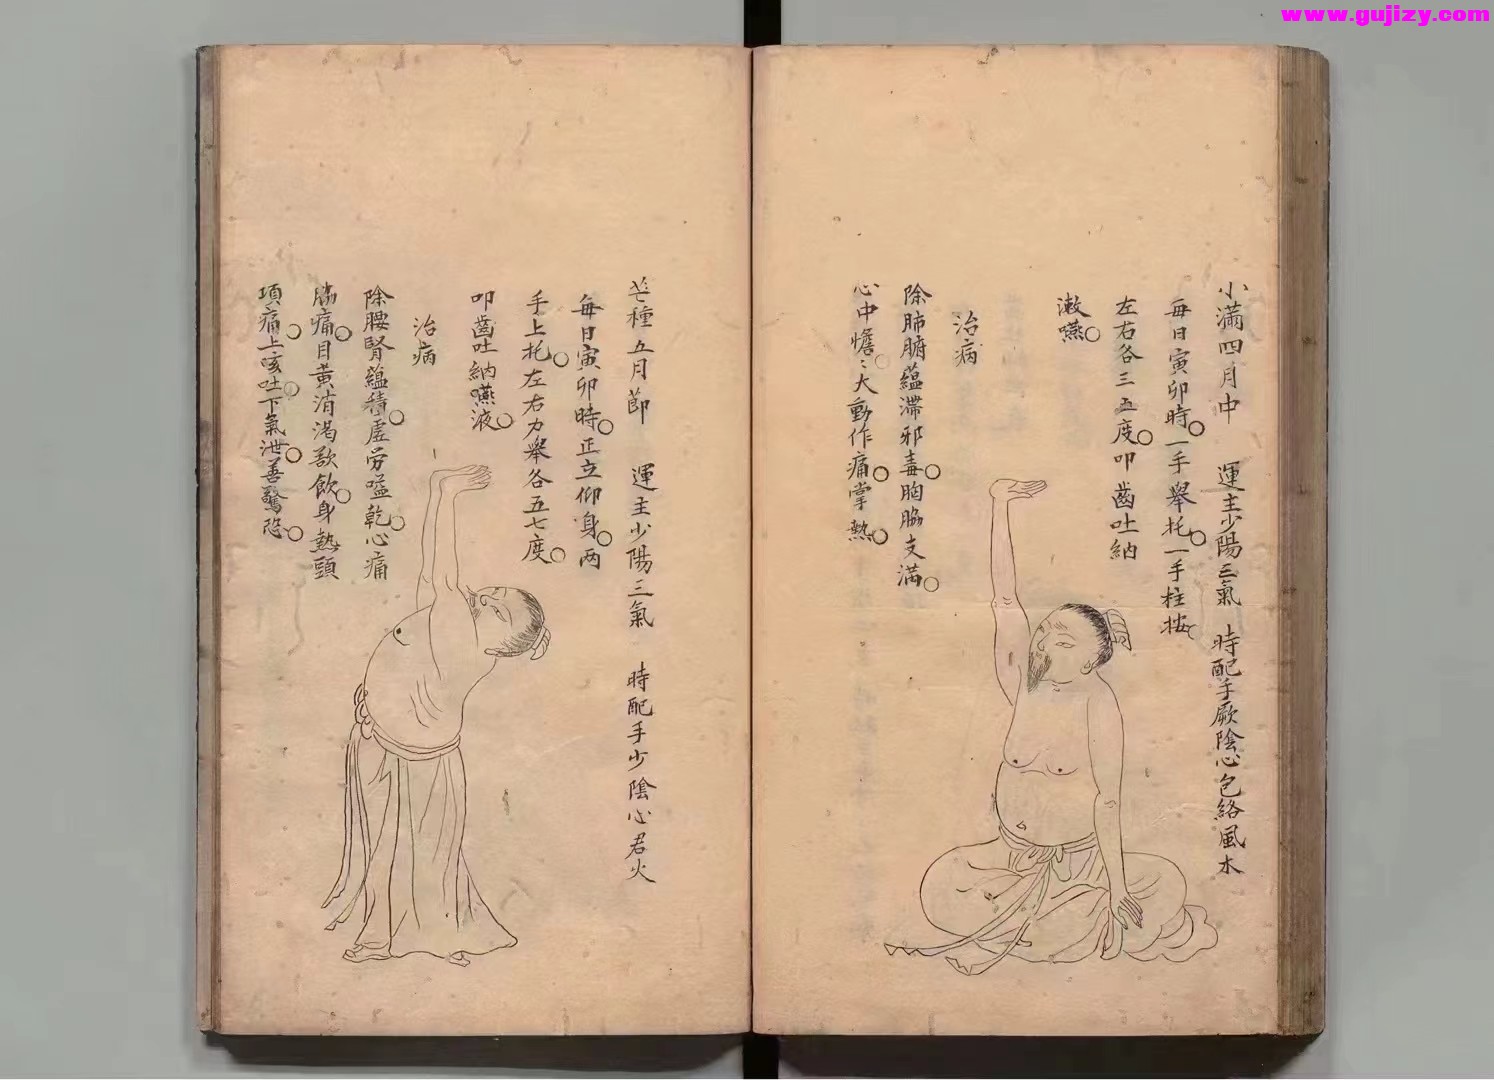 www.gujizy.com
小滿四月中　運主少陽三氣　時配手厥陰心包絡風木
每日寅卯時。一手舉托。一手拄按
左右各三五度。叩齒吐納
漱嚥。
治病
除肺腑蘊滯邪毒。胸脇支滿。
心中憺。憺大動作痛。掌熱。
芒種五月節　運主少陽三氣　時配手少陰心君火
每日寅卯時。正立仰身。兩
手上托。左右力舉各五七度。
叩齒吐納嚥液。
治病
除腰腎蘊積。虛勞嗌乾。心痛
脇痛。目黃消渴欲飲。身熱頭
項痛。上咳吐。下氣泄。善驚恐。